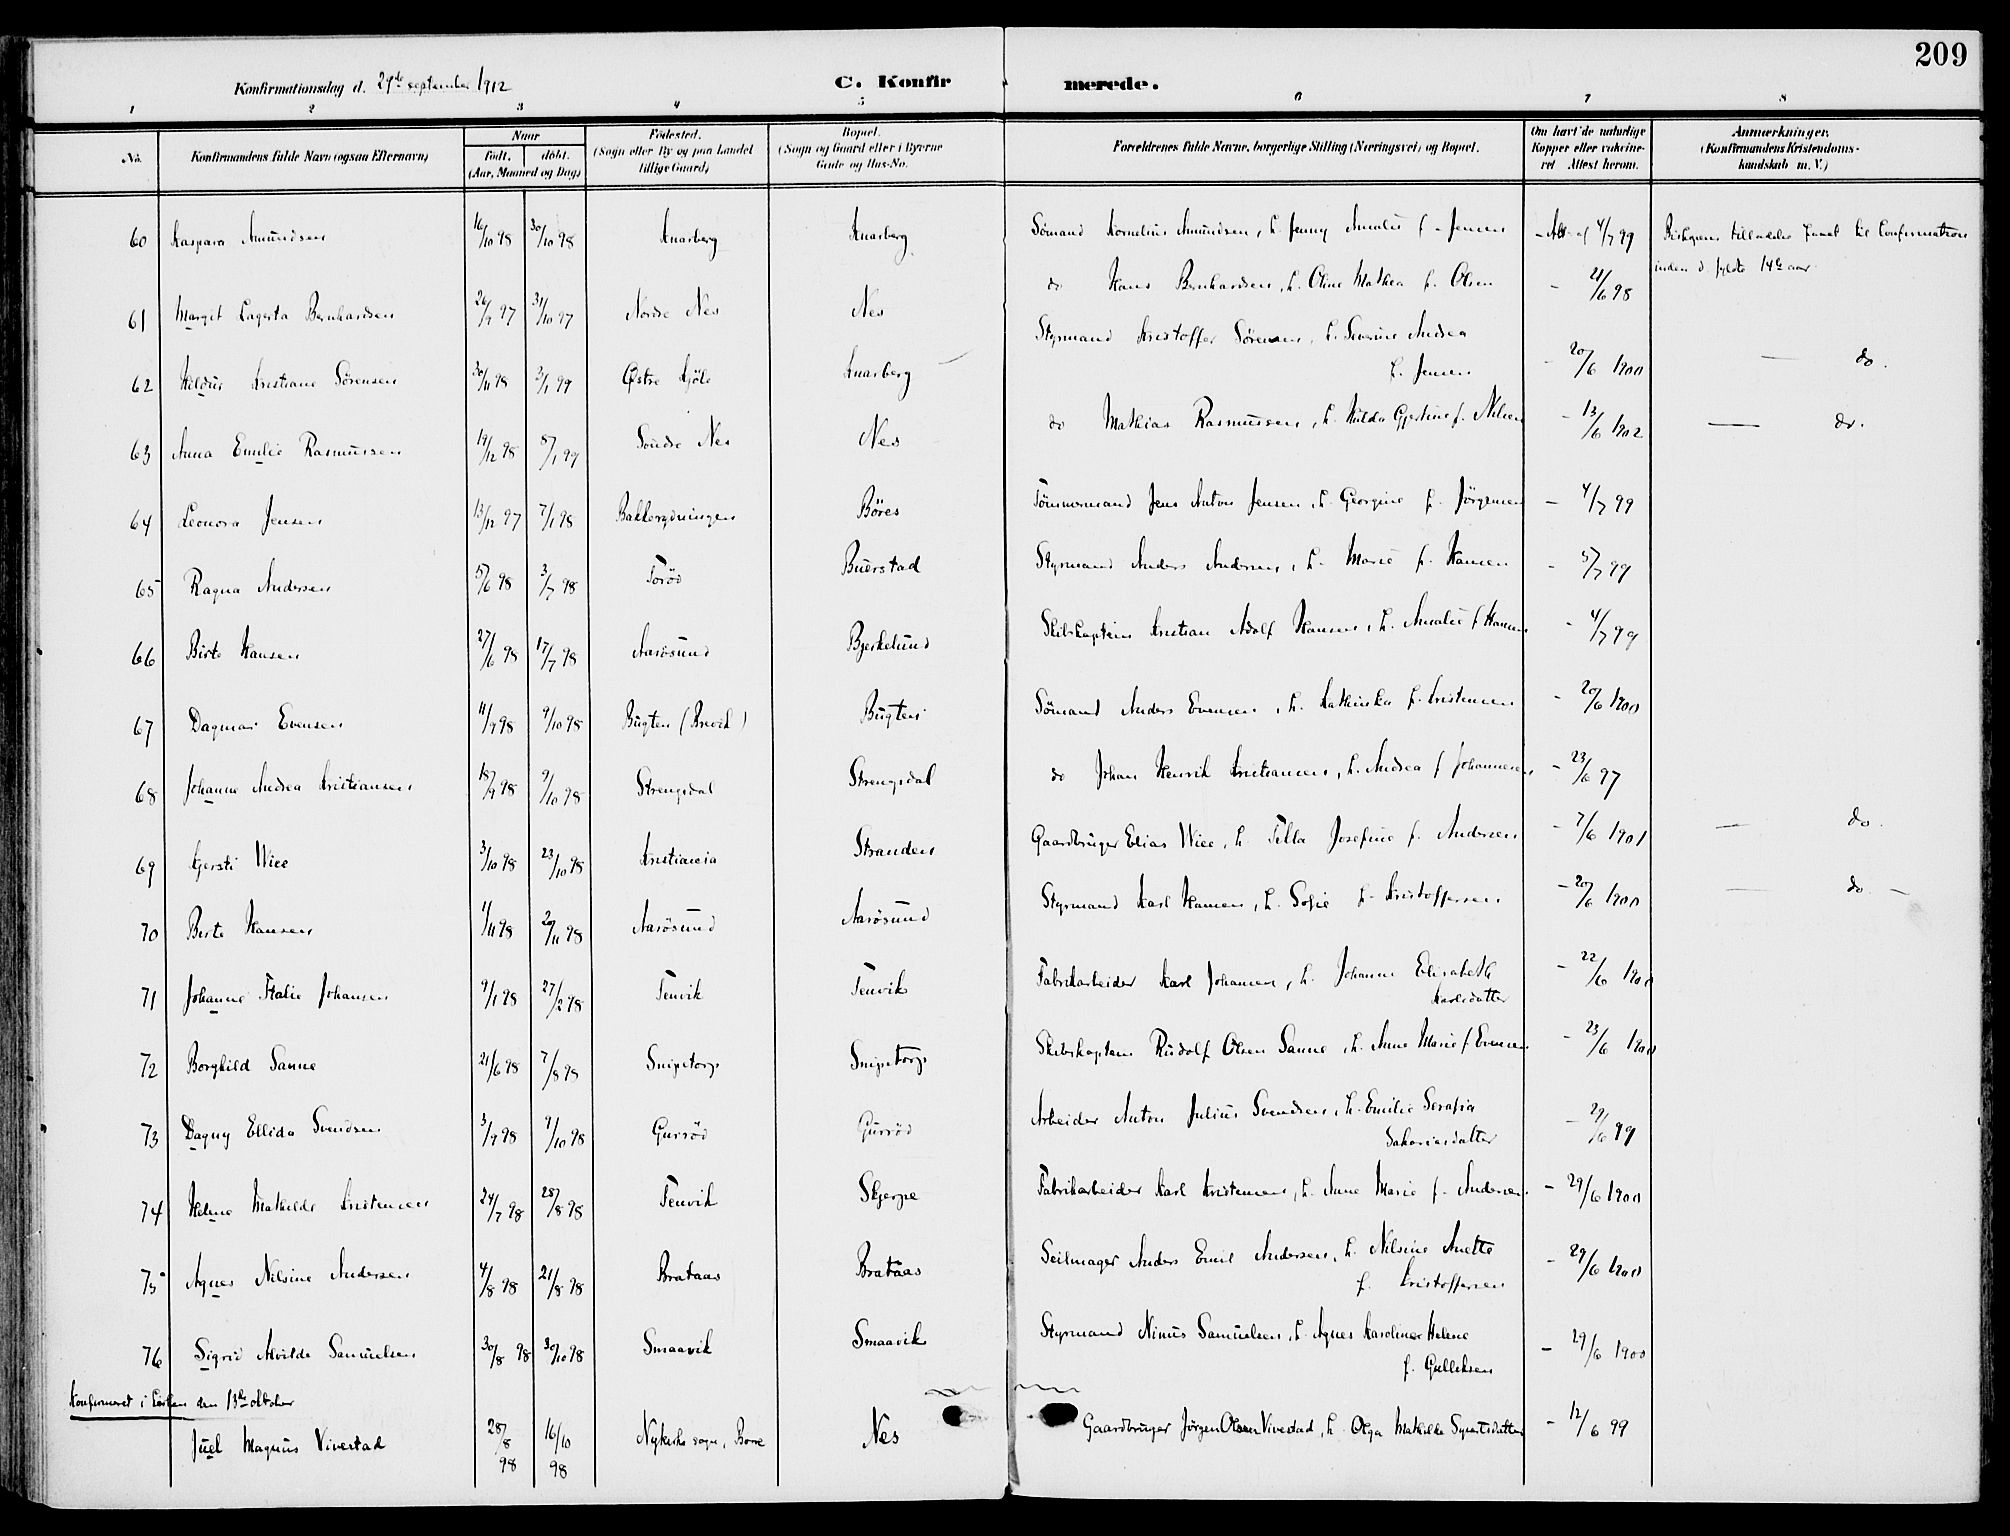 209
Konfirmationsdag d. 29de september 1912 C. Konfirmerede.
1 2 3 4 5 6 7 8
No. Konfirmandens fulde Navn (ogsaa Efternavn) Naar født, døbt. (Aar, Maaned og Dag) Fødested. (Sogn eller By og paa Landet tillige Gaard) Bopæl. (Sogn og Gaard eller i Byerne Gade og Hus-No. Forældrenes fulde Navne, borgerlige Stilling (Næringsvei) og Bopæl. Om havt de naturlige Kopper eller vakcineret Attest herom. Anmærkninger. (Konfirmandens Kristendomskundskab m. V.)
60 Kaspara Amundsen 16/10 98 30/10 98 Knarberg Knarberg Sömand Kornelius Amundsen, h. Jenny Amalie f. Jensen Att. af 4/7 99 Biskopens tilladelse til Confirmation
inden d. fyldte 14de aar.
61 Margit Lagerta Bernhardsen 26/9 97 31/10 97 Nordre Nes Nes do Hans Bernhardsen, h. Oline Mathea f. Olsen - 21/6 98
62 Hildur Kristiane Sörensen 30/11 98 3/1 99 Østre Kjöle Knarberg Styrmand Kristoffer Sörensen, h. Severine Andrea
f. Jensen - 20/6 1900 — do.
63 Anna Emilie Rasmussen 19/12 98 8/1 99 Söndre Nes Nes do Mathias Rasmussen, h. Hulda Gjertine f. Nilsen - 13/6 1902 — do.
64 Leonora Jensen 13/12 97 7/1 98 Bakkerydningen Böres Tömmermand Jens Anton Jensen, h. Georgine f. Jörgensen - 4/7 99
65 Ragna Andersen 5/6 98 3/7 98 Torød Buerstad Styrmand Anders Andersen, h. Marie f. Hansen - 5/7 99
66 Birte Hansen 27/6 98 17/7 98 Aarösund Bjerkelund Skibskaptein Kristian Adolf Hansen, h. Amalie f. Hansen - 4/7 99
67 Dagmar Evensen 11/9 98 9/10 98 Bugten (Brevik) Bugten Sömand Anders Evensen, h. Kathinka f. Kristensen - 20/6 1900
68 Johanne Andrea Kristiansen 18/9 98 9/10 98 Strengsdal Strengsdal do Johan Henrik Kristiansen, h. Andrea f. Johannesen - 23/6 97
69 Kjersti Wiee 3/10 98 23/10 98 Kristiania Stranden Gaardbruger Elias Wiee, h. Tilla Josefine f. Andersen - 7/6 1901 — do.
70 Berte Hansen 1/11 98 20/11 98 Aarösund Aarösund Styrmand Karl Hansen, h. Sofie f. Kristoffersen - 20/6 1900 — do. -
71 Johanne Italie Johansen 9/1 98 27/2 98 Tenvik Tenvik Fabrikarbeider Karl Johansen, h. Johanne Elisabeth
Karlsdatter - 22/6 1900
72 Borghild Sanne 21/6 98 7/8 98 Snipetorp Snipetorp Skibskaptein Rudolf Olsen Sanne, h. Anne Marie f. Evensen - 23/6 1900
73 Dagny Ellida Svendsen 3/9 98 9/10 98 Gurröd Gurröd Arbeider Anton Julius Svendsen, h. Emilie Serafia
Sakariasdatter - 29/6 99
74 Helene Mathilde Kristensen 24/7 98 28/8 98 Tenvik Skjerpe Fabrikarbeider Karl Kristensen, h. Anne Marie f. Andersen - 29/6 1900
75 Agnes Nilsine Andersen 4/8 98 21/8 98 Brataas Brataas Seilmager Anders Emil Andersen, h. Nilsine Anette
f. Kristoffersen - 29/6 1900
76 Sigrid Alvilde Samuelsen 30/8 98 30/10 98 Smaavik Smaavik Styrmand Ninus Samuelsen, h. Agnes Karoline Helene
f. Gulliksen - 29/6 1900
Konfirmeret i kirken den 13de oktober
Juel Magnus Vivestad 28/8 98 16/10 98 Nykirke sogn, Borre Nes Gaardbruger Jörgen Olsen Vivestad, h. Olga Mathilde Syvertsdatter - 12/6 99